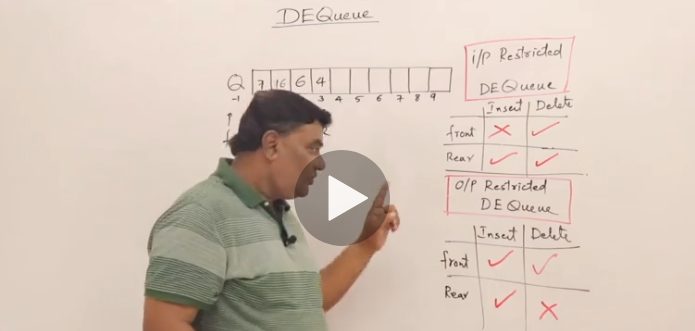 DEQueue
Q 7 16 6 4
-1 3 4 5 6 7 8 9
f
i/p Restricted
DEQueue
Insert Delete
front ✗ ✓
Rear ✓ ✓
O/P Restricted
DEQueue
Insert Delete
front ✓ ✓
Rear ✓ ✗